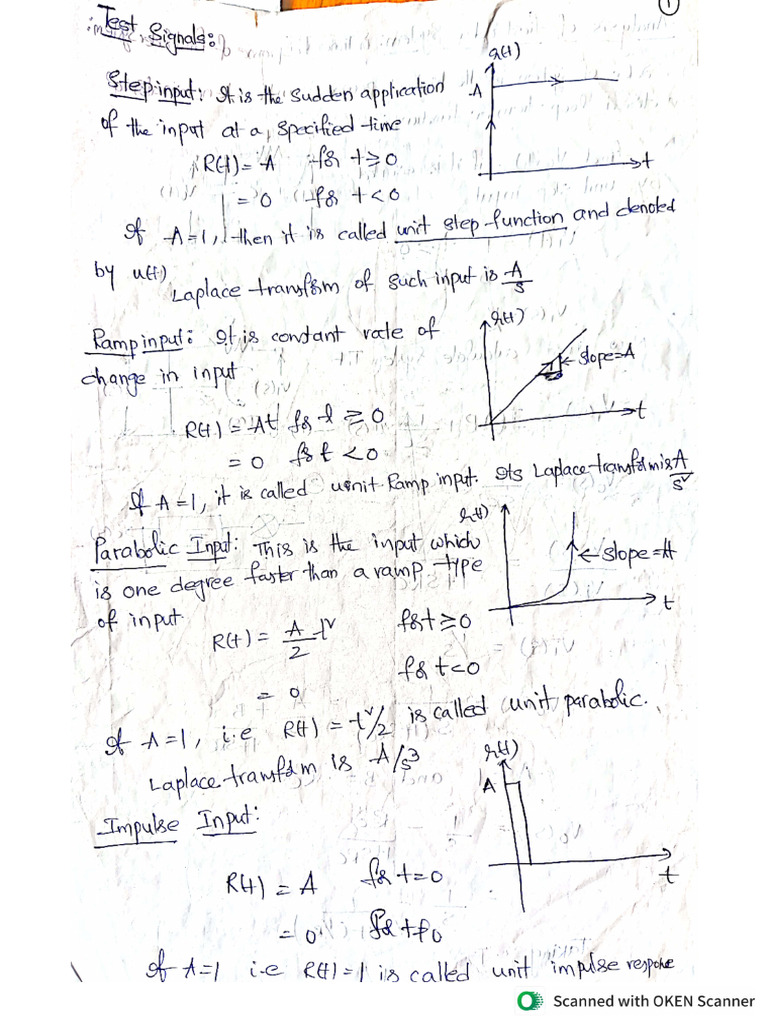 1
Test Signals:
Step input: It is the sudden application
of the input at a specified time
R(t) = A for t ≥ 0
= 0 for t < 0
r(t)
A
t
If A=1, then it is called unit step function and denoted
by u(t)
Laplace transform of such input is A/s
Ramp input: It is constant rate of
change in input
R(t) = At for t ≥ 0
= 0 for t < 0
r(t)
slope=A
t
If A=1, it is called unit Ramp input. Its Laplace transform is A/s²
Parabolic Input: This is the input which
is one degree faster than a ramp type
of input
r(t)
slope=At
t
R(t) = A/2 t² for t ≥ 0
= 0 for t < 0
If A=1, i.e R(t) = t²/2 is called unit parabolic.
Laplace transform is A/s³
Impulse Input:
r(t)
A
t
R(t) = A for t=0
= 0 for t≠0
If A=1 i.e R(t)=1 is called unit impulse
Scanned with OKEN Scanner